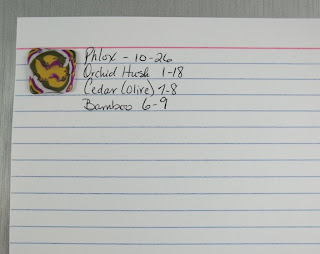 Phlox - 10-26
Orchid Hush 1-18
Cedar (Olive) 7-8
Bamboo 6-9